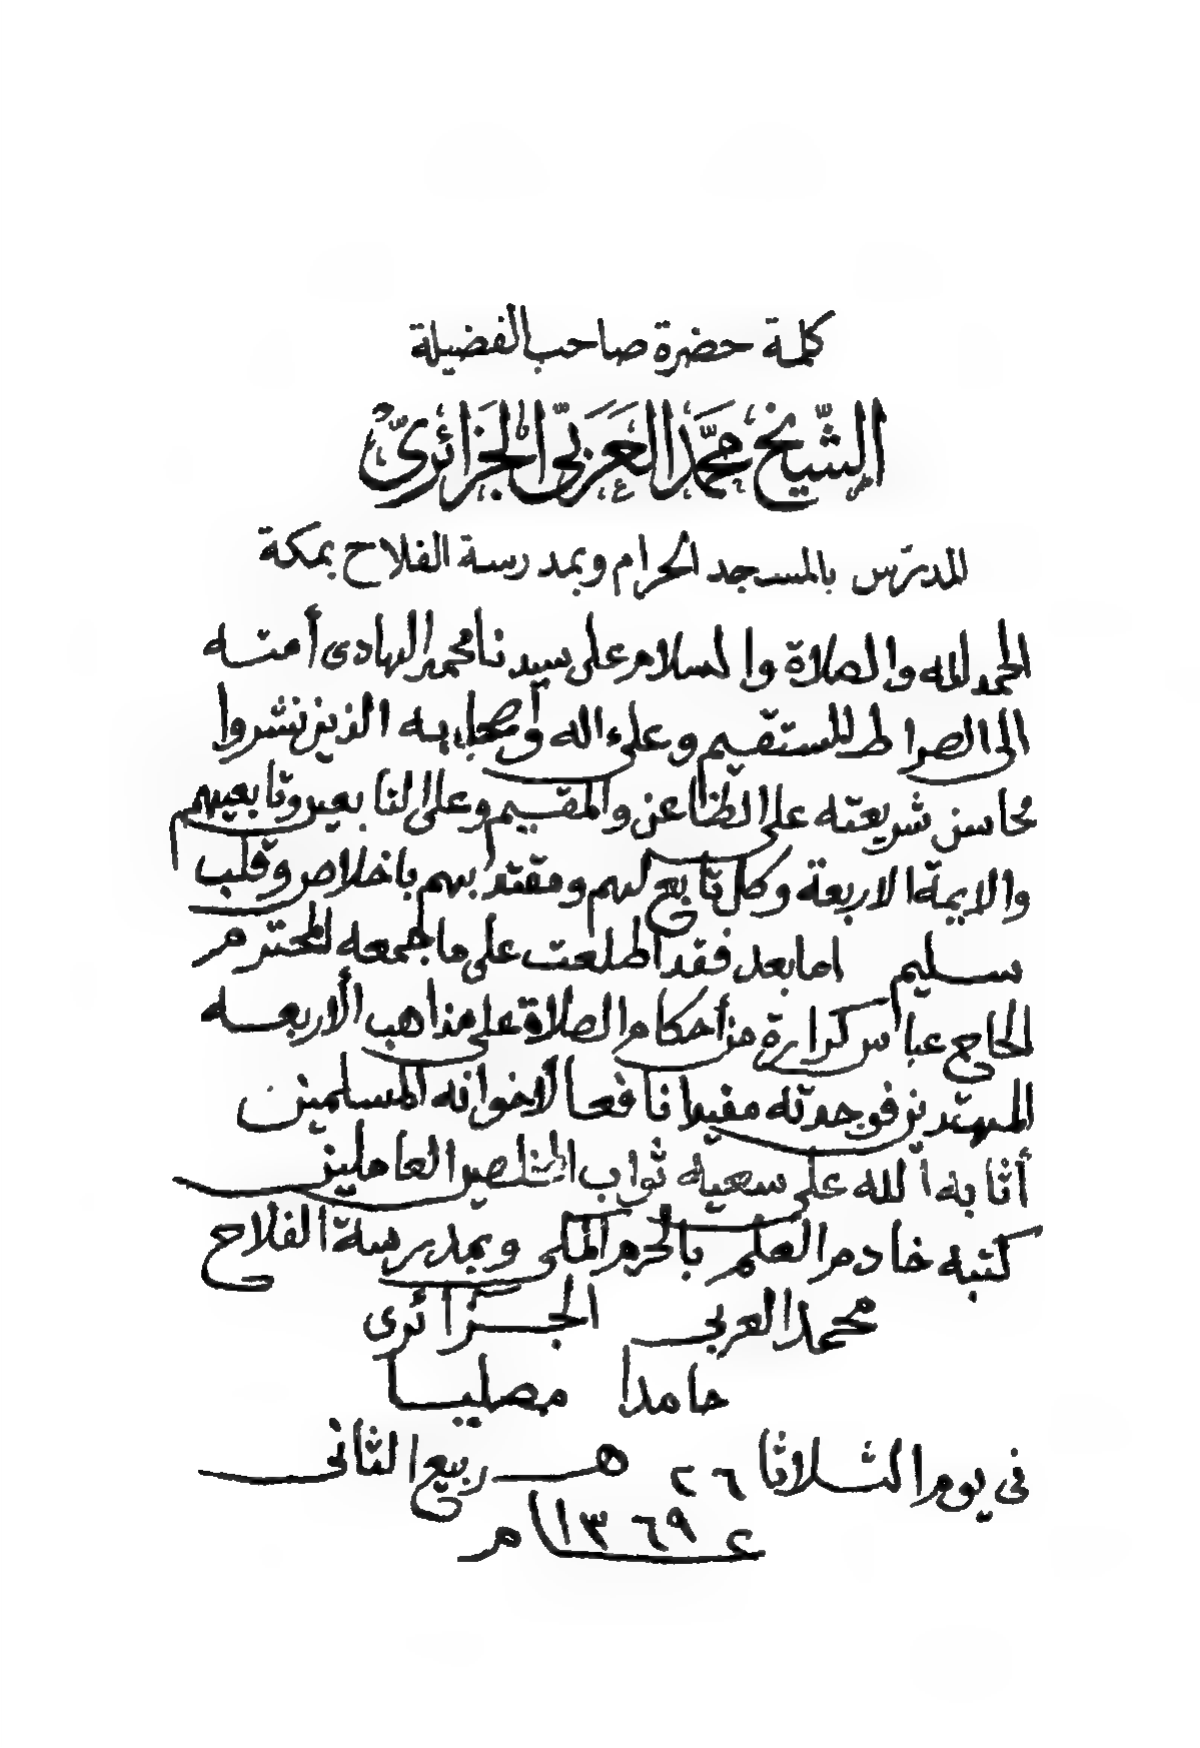 كلمة حضرة صاحب الفضيلة
الشّيخ محمَّد العَرَبيّ الجَزائريّ
المدرّس بالمسجد الحرام وبمدرسة الفلاح بمكة
الحمد لله والصلاة والسلام على سيدنا محمد الهادى أمته
الى الصراط المستقيم وعلى اله وأصحابه الذين نشروا
محاسن شريعته على الظاعن والمقيم وعلى التابعين وتابعيهم
والايمة الاربعة وكل تابع لهم ومقتد بهم باخلاص وقلب
سليم اما بعد فقد اطلعت على ما جمعه المحترم
الحاج عباس كرارة من أحكام الصلاة على مذاهب الأربعه
المهتدين فوجدته مفيدا نافعا لأخوانه المسلمين
أثابه الله على سعيه ثواب المخلصين العاملين
كتبه خادم العلم بالحرم المكى وبمدرسة الفلاح
محمد العربى الجزائرى
حامدا مصليا
فى يوم الثلاثا ٢٦ ربيع الثانى
١٣٦٩